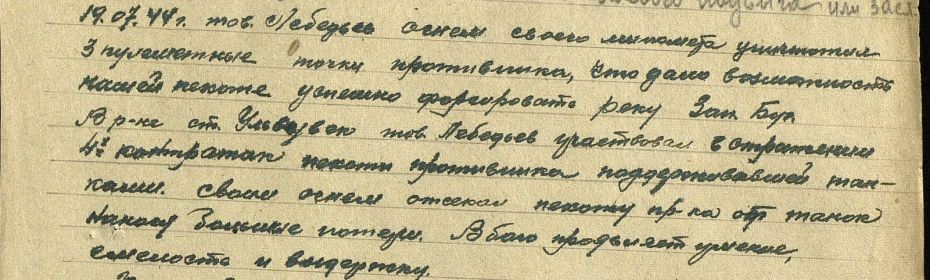 подвига или засл
19.07.44 г. тов. Лебедьев огнем своего миномета уничтожил
3 пулеметные точки противника, что дало возможность
нашей пехоте успешно форсировать реку Зап. Буг
В р-не ст. Ульвувек тов. Лебедьев участвовал в отражении
4х контратак пехоты противника поддерживавшей тан-
ками. Своим огнем отсекал пехоту пр-ка от танок
нанося большие потери. В бою проявляет умение,
смелость и выдержку.